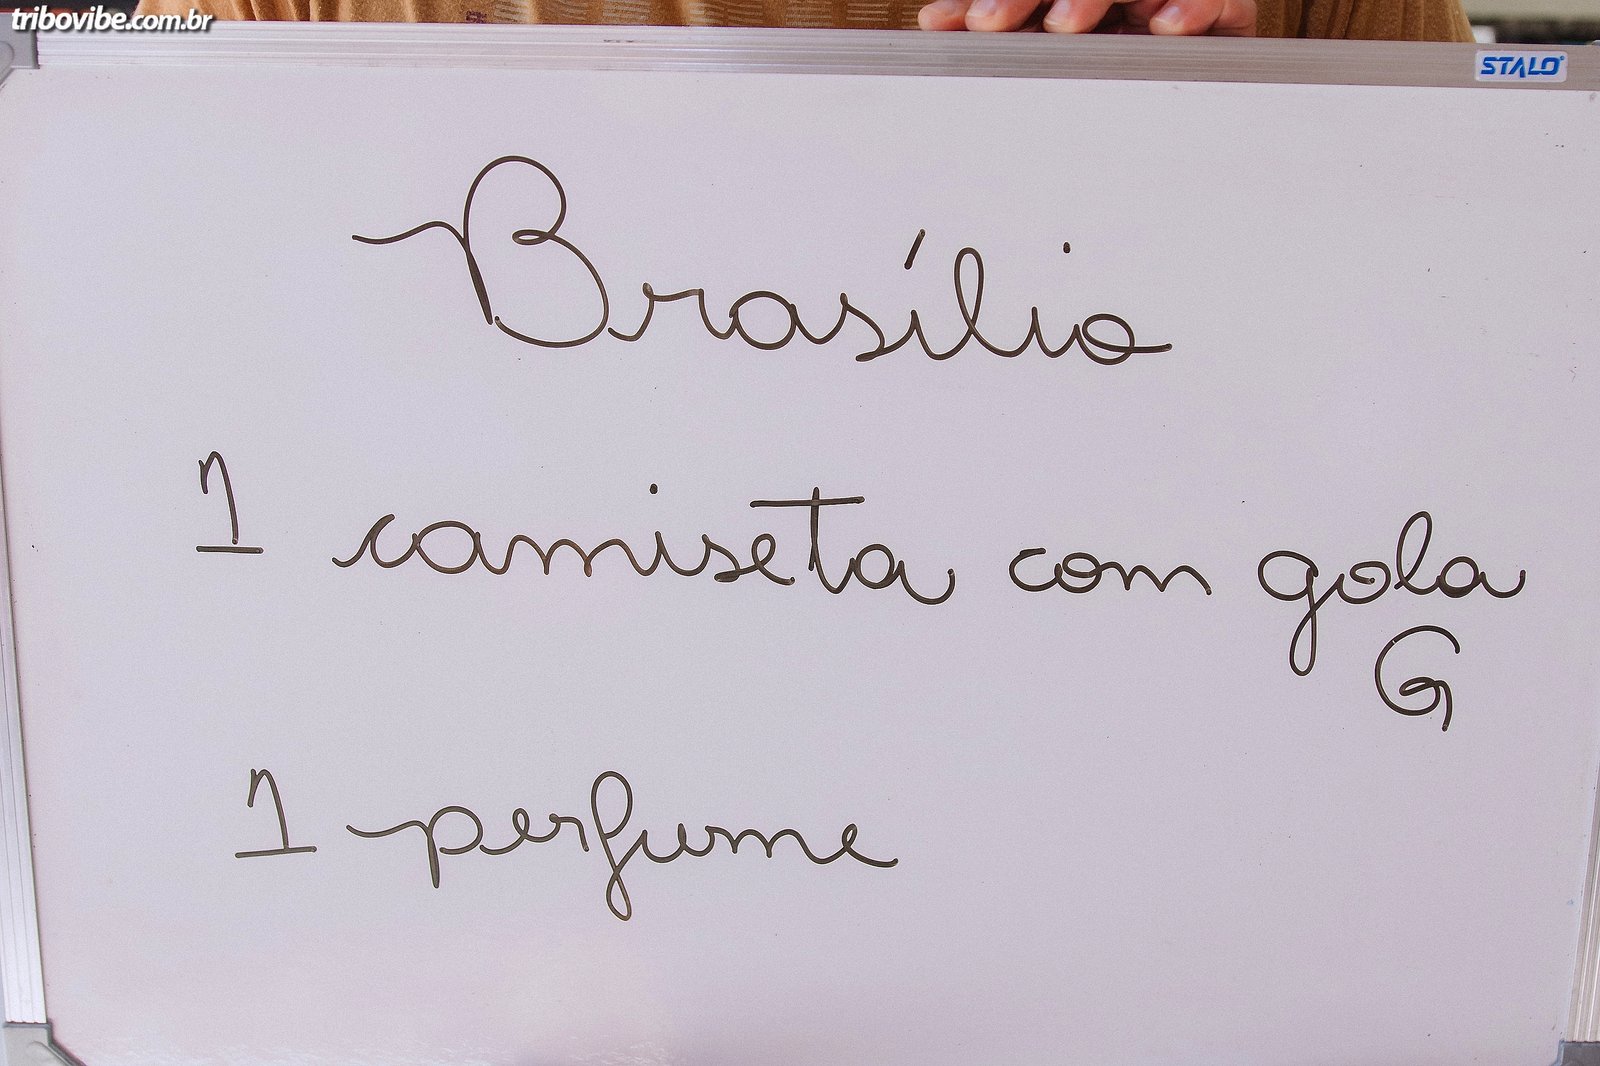 tribovibe.com.br
STALO
Brasílio
1 camiseta com gola
G
1 perfume